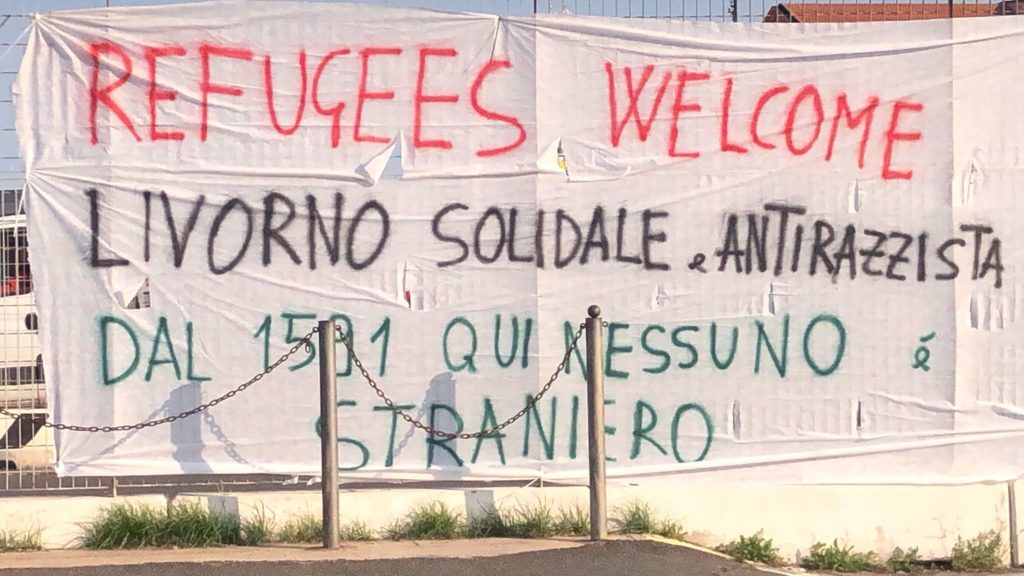 REFUGEES WELCOME
LIVORNO SOLIDALE e ANTIRAZZISTA
DAL 1591 QUI NESSUNO é
STRANIERO